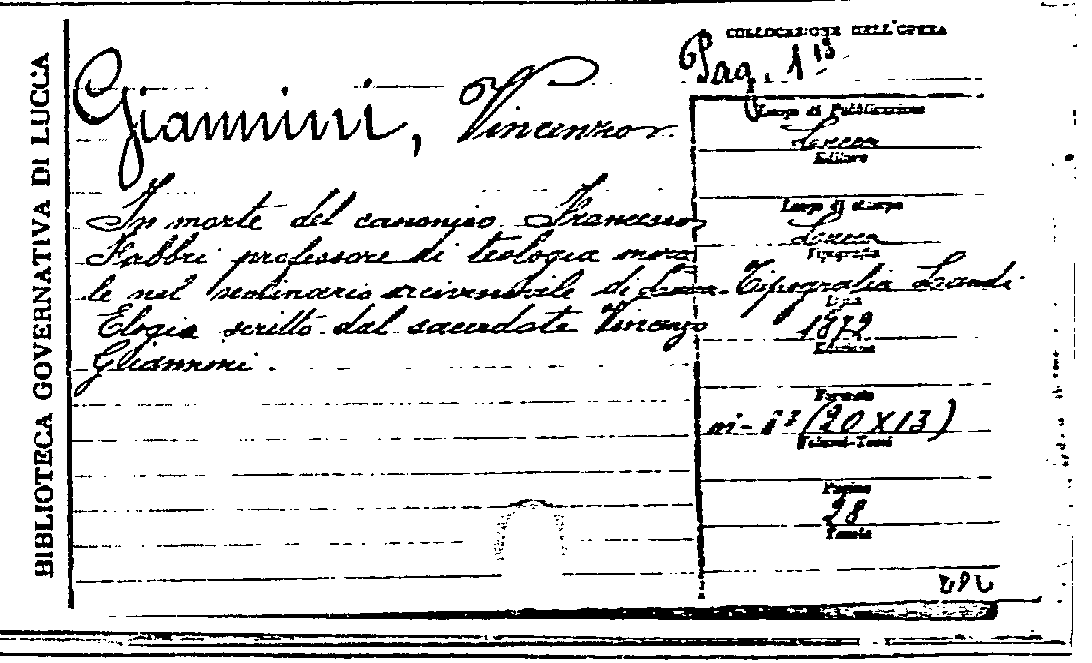 BIBLIOTECA GOVERNATIVA DI LUCCA
COLLOCAZIONE DELL'OPERA
Giannini, Vincenzo
In morte del canonico Francesco
Fabbri professore di teologia mora
le nel seminario arcivescovile di Lucca.
Elogio scritto dal sacerdote Vincenzo
Giannini.
Luogo di Pubblicazione
Lucca
Editore
Luogo di stampa
Lucca
Tipografia
Tipografia Landi
Data
1872
Edizione
Formato
in-8° (20 X 13)
Volumi-Tomi
Pagine
28
Tavole